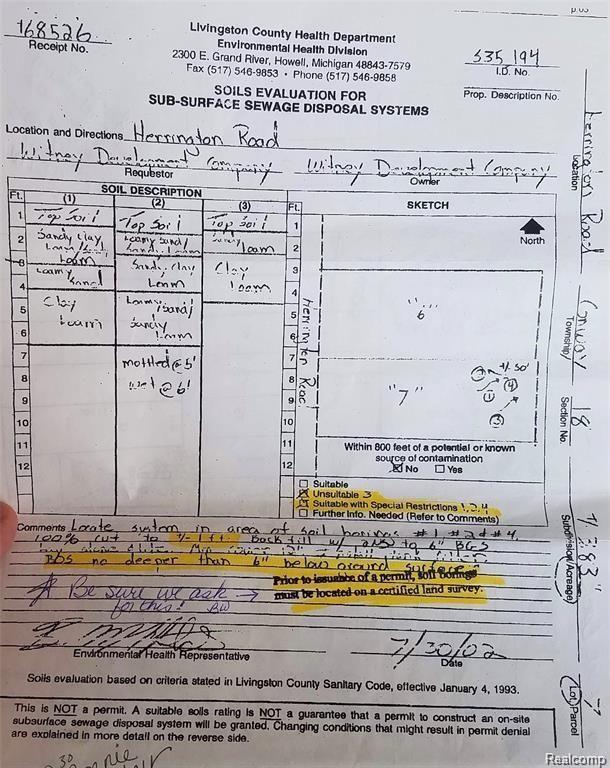 168526
Receipt No.
Livingston County Health Department
Environmental Health Division
2300 E. Grand River, Howell, Michigan 48843-7579
Fax (517) 546-9853 • Phone (517) 546-9858
I.D. No.
Prop. Description No.
SOILS EVALUATION FOR
SUB-SURFACE SEWAGE DISPOSAL SYSTEMS
Location and Directions Herrington Road
Witney Development Company
Requestor
Witney Development Company
Owner
Ft.
SOIL DESCRIPTION
(1) (2) (3)
Ft.
SKETCH
North
1 Top Soil Top Soil Top Soil 1
2 Sandy Clay Loamy Sand/ Sandy Loam Loam 2
3 Loam Sandy Clay Clay 3
4 Loamy Sand Loam Loam 4
5 Clay Loamy Sand/ 5
6 Loam Sandy Loam 6
7 mottled @ 5' 7
8 wet @ 6' 8
9 9
10 10
11 11
12 12
Herrington Road
"6"
"7"
+/- 50'
Within 800 feet of a potential or known
source of contamination
No Yes
Suitable
Unsuitable 3
Suitable with Special Restrictions 1,2,4
Further Info. Needed (Refer to Comments)
Comments Locate system in area of soil borings #1 #2 & #4
100% cut to +/- 1 ft. Backfill w/ 2NS to 6" BGS
BOS no deeper than 6" below ground surface
Be sure we ask
for this! BW
Prior to issuance of a permit, soil borings
must be located on a certified land survey.
Environmental Health Representative
7/30/02
Date
Soils evaluation based on criteria stated in Livingston County Sanitary Code, effective January 4, 1993.
This is NOT a permit. A suitable soils rating is NOT a guarantee that a permit to construct an on-site
subsurface sewage disposal system will be granted. Changing conditions that might result in permit denial
are explained in more detail on the reverse side.
Herrington Road
Location
Conway
Township
18
Section No.
Subdivision/Acreage
7
Lot/Parcel
Realcomp